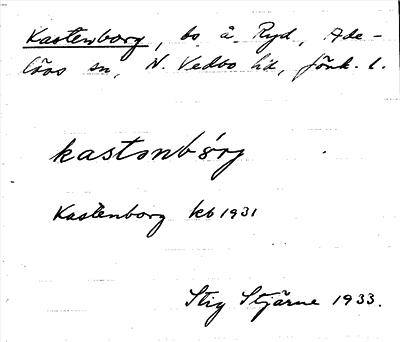 Kastenborg, bs å. Ryd, Ade-
lövs sn, N. Vedbo hd, Jönk. l.
kastɘnbórj
Kastenborg kb 1931
Stig Stjärne 1933.